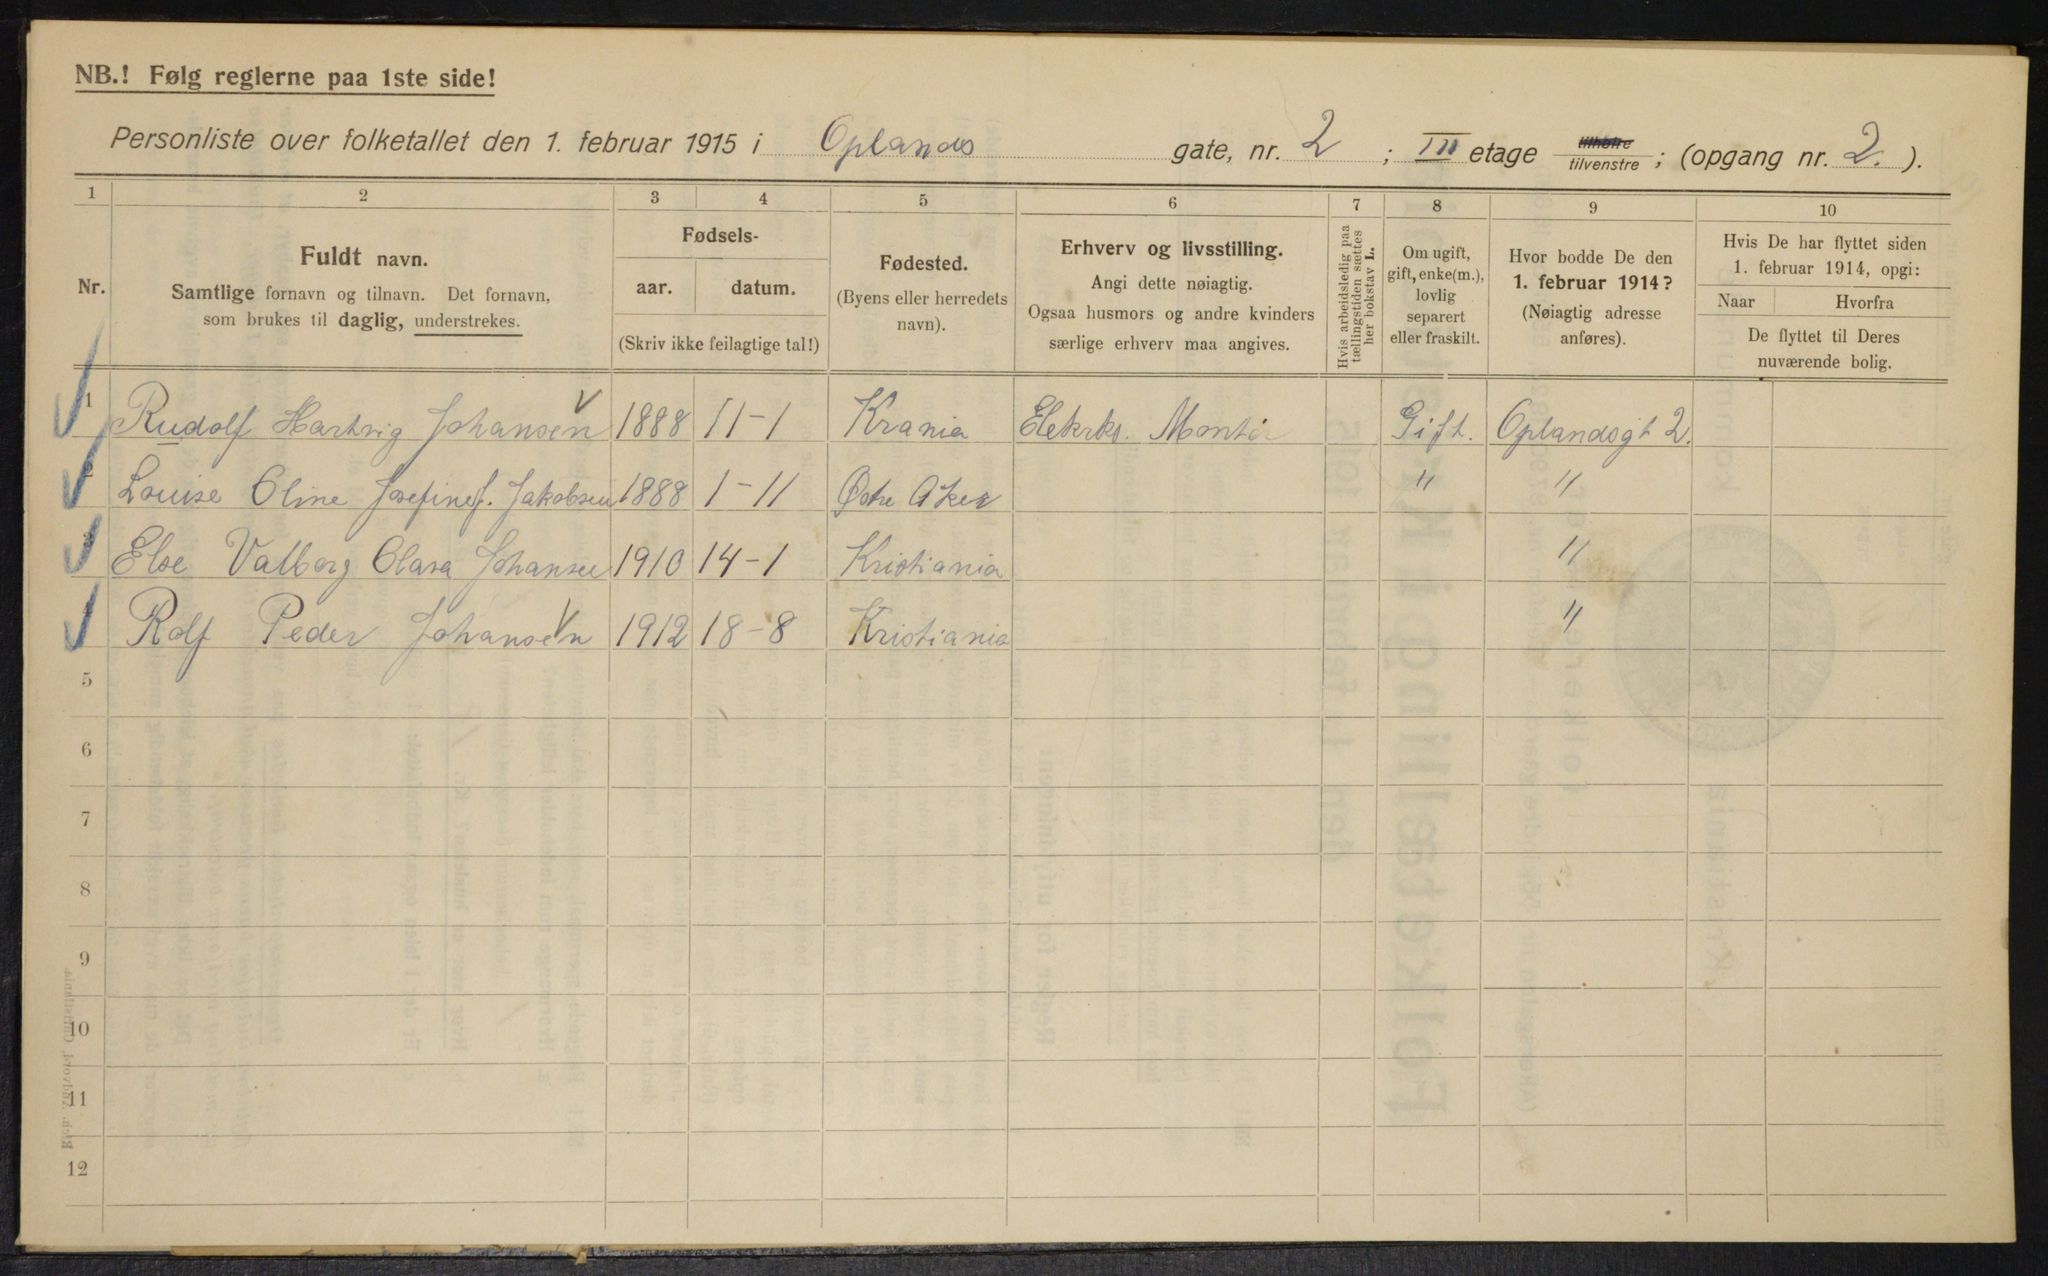 NB.! Følg reglerne paa 1ste side!
Personliste over folketallet den 1. februar 1915 i Oplands gate, nr. 2 ; III etage tilhøire tilvenstre ; (opgang nr. 2. ).
1 2 3 4 5 6 7 8 9 10
Nr.
Fuldt navn.
Samtlige fornavn og tilnavn. Det fornavn,
som brukes til daglig, understrekes.
Fødsels-
aar. datum.
(Skriv ikke feilagtige tal!)
Fødested.
(Byens eller herredets
navn).
Erhverv og livsstilling.
Angi dette nøiagtig.
Ogsaa husmors og andre kvinders
særlige erhverv maa angives.
Hvis arbeidsledig paa
tællingstiden sættes
her bokstav L.
Om ugift,
gift, enke(m.),
lovlig
separert
eller fraskilt.
Hvor bodde De den
1. februar 1914?
(Nøiagtig adresse
anføres).
Hvis De har flyttet siden
1. februar 1914, opgi:
Naar Hvorfra
De flyttet til Deres
nuværende bolig.
1 Rudolf Hartvig Johansen 1888 11-1 Krania Elektrks. Montör Gift. Oplandsgt 2.
2 Louise Oline Josefine f. Jakobsen 1888 1-11 Østre Aker " "
Else Valborg Clara Johansen 1910 14-1 Kristiania "
Rolf Peder Johansen 1912 18-8 Kristiania "
5
6
7
8
9
10
11
12